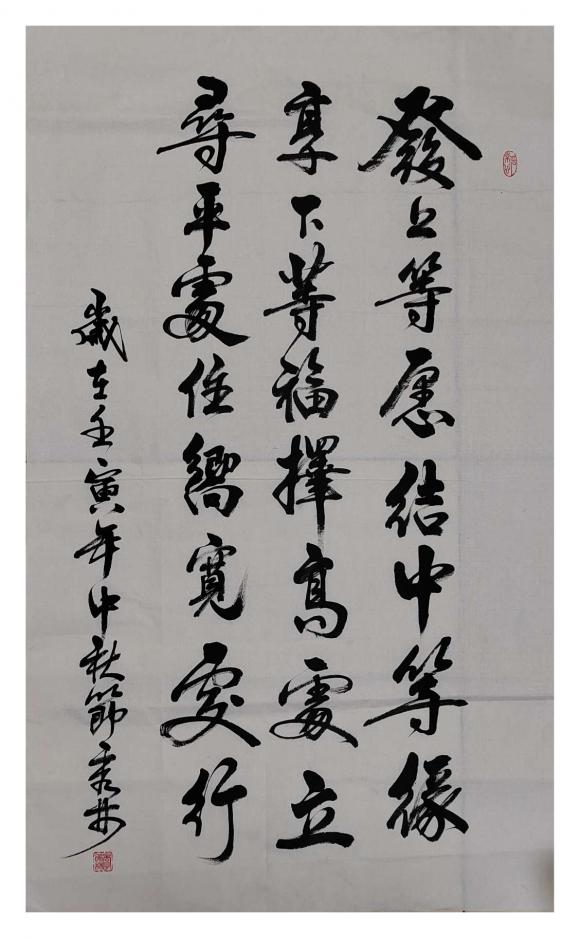 發上等愿结中等緣
享下等福擇高處立
尋平處住嚮寬處行
歲在壬寅年中秋節秀林